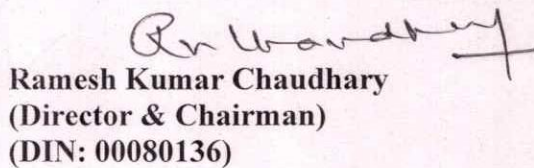 Ramesh Kumar Chaudhary
(Director & Chairman)
(DIN: 00080136)